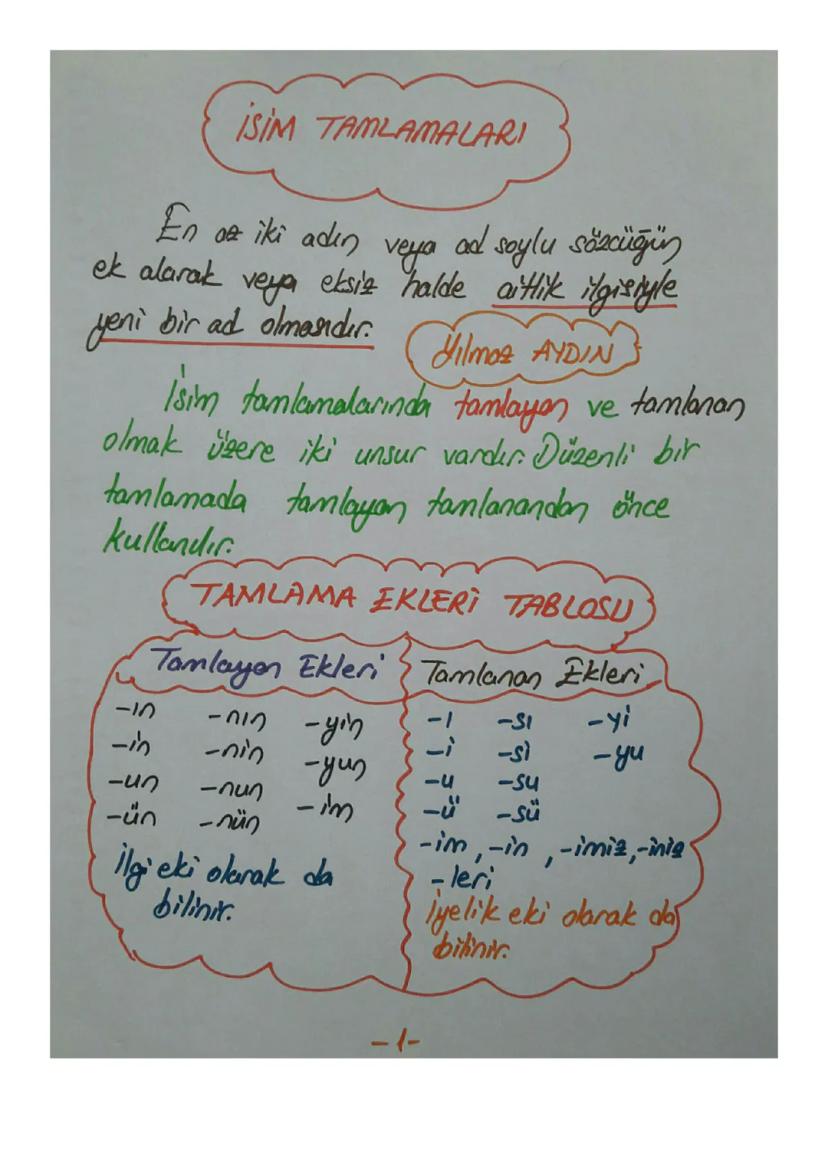 İSİM TAMLAMALARI
En az iki adın veya ad soylu sözcüğün
ek alarak veya eksiz halde aitlik ilgisiyle
yeni bir ad olmasıdır.
Yılmaz AYDIN
İsim tamlamalarında tamlayan ve tamlanan
olmak üzere iki unsur vardır. Düzenli bir
tamlamada tamlayan tamlanandan önce
kullanılır.
TAMLAMA EKLERİ TABLOSU
Tamlayan Ekleri
-ın -nın -yin
-in -nin -yun
-un -nun -im
-ün -nün
İlgi eki olarak da
bilinir.
Tamlanan Ekleri
-ı -sı -yi
-i -si -yu
-u -su
-ü -sü
-im, -in, -imiz, -iniz
-leri
İyelik eki olarak da
bilinir.
-1-